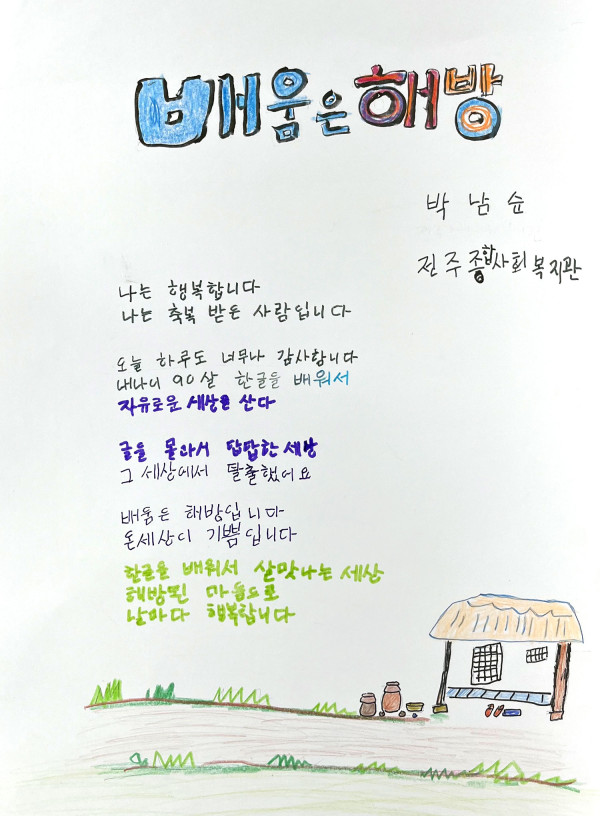 배움은해방
박남순
전주종합사회복지관
나는 행복합니다
나는 축복 받은 사람입니다
오늘 하루도 너무나 감사합니다
내나이 90살 한글을 배워서
자유로운 세상을 산다
글을 몰라서 답답한세상
그 세상에서 탈출했어요
배움은 해방입니다
온세상이 기쁨입니다
한글을 배워서 살맛나는 세상
해방된 마음으로
날마다 행복합니다